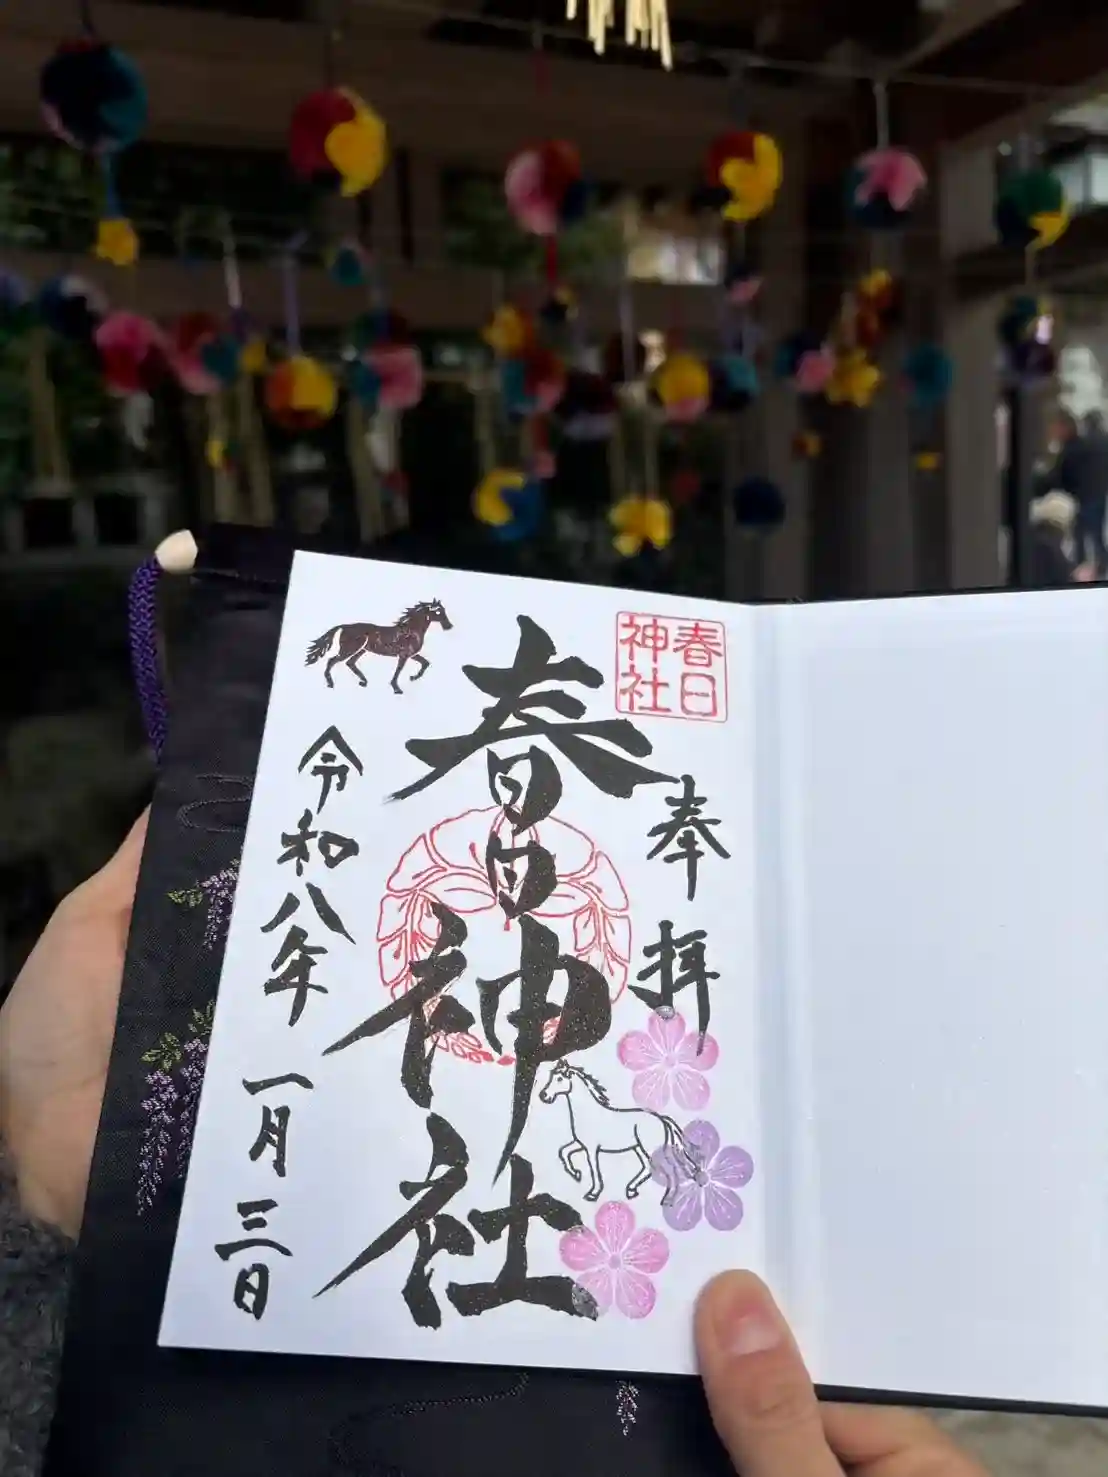 奉拝
春日
神社
春日神社
令和八年一月三日